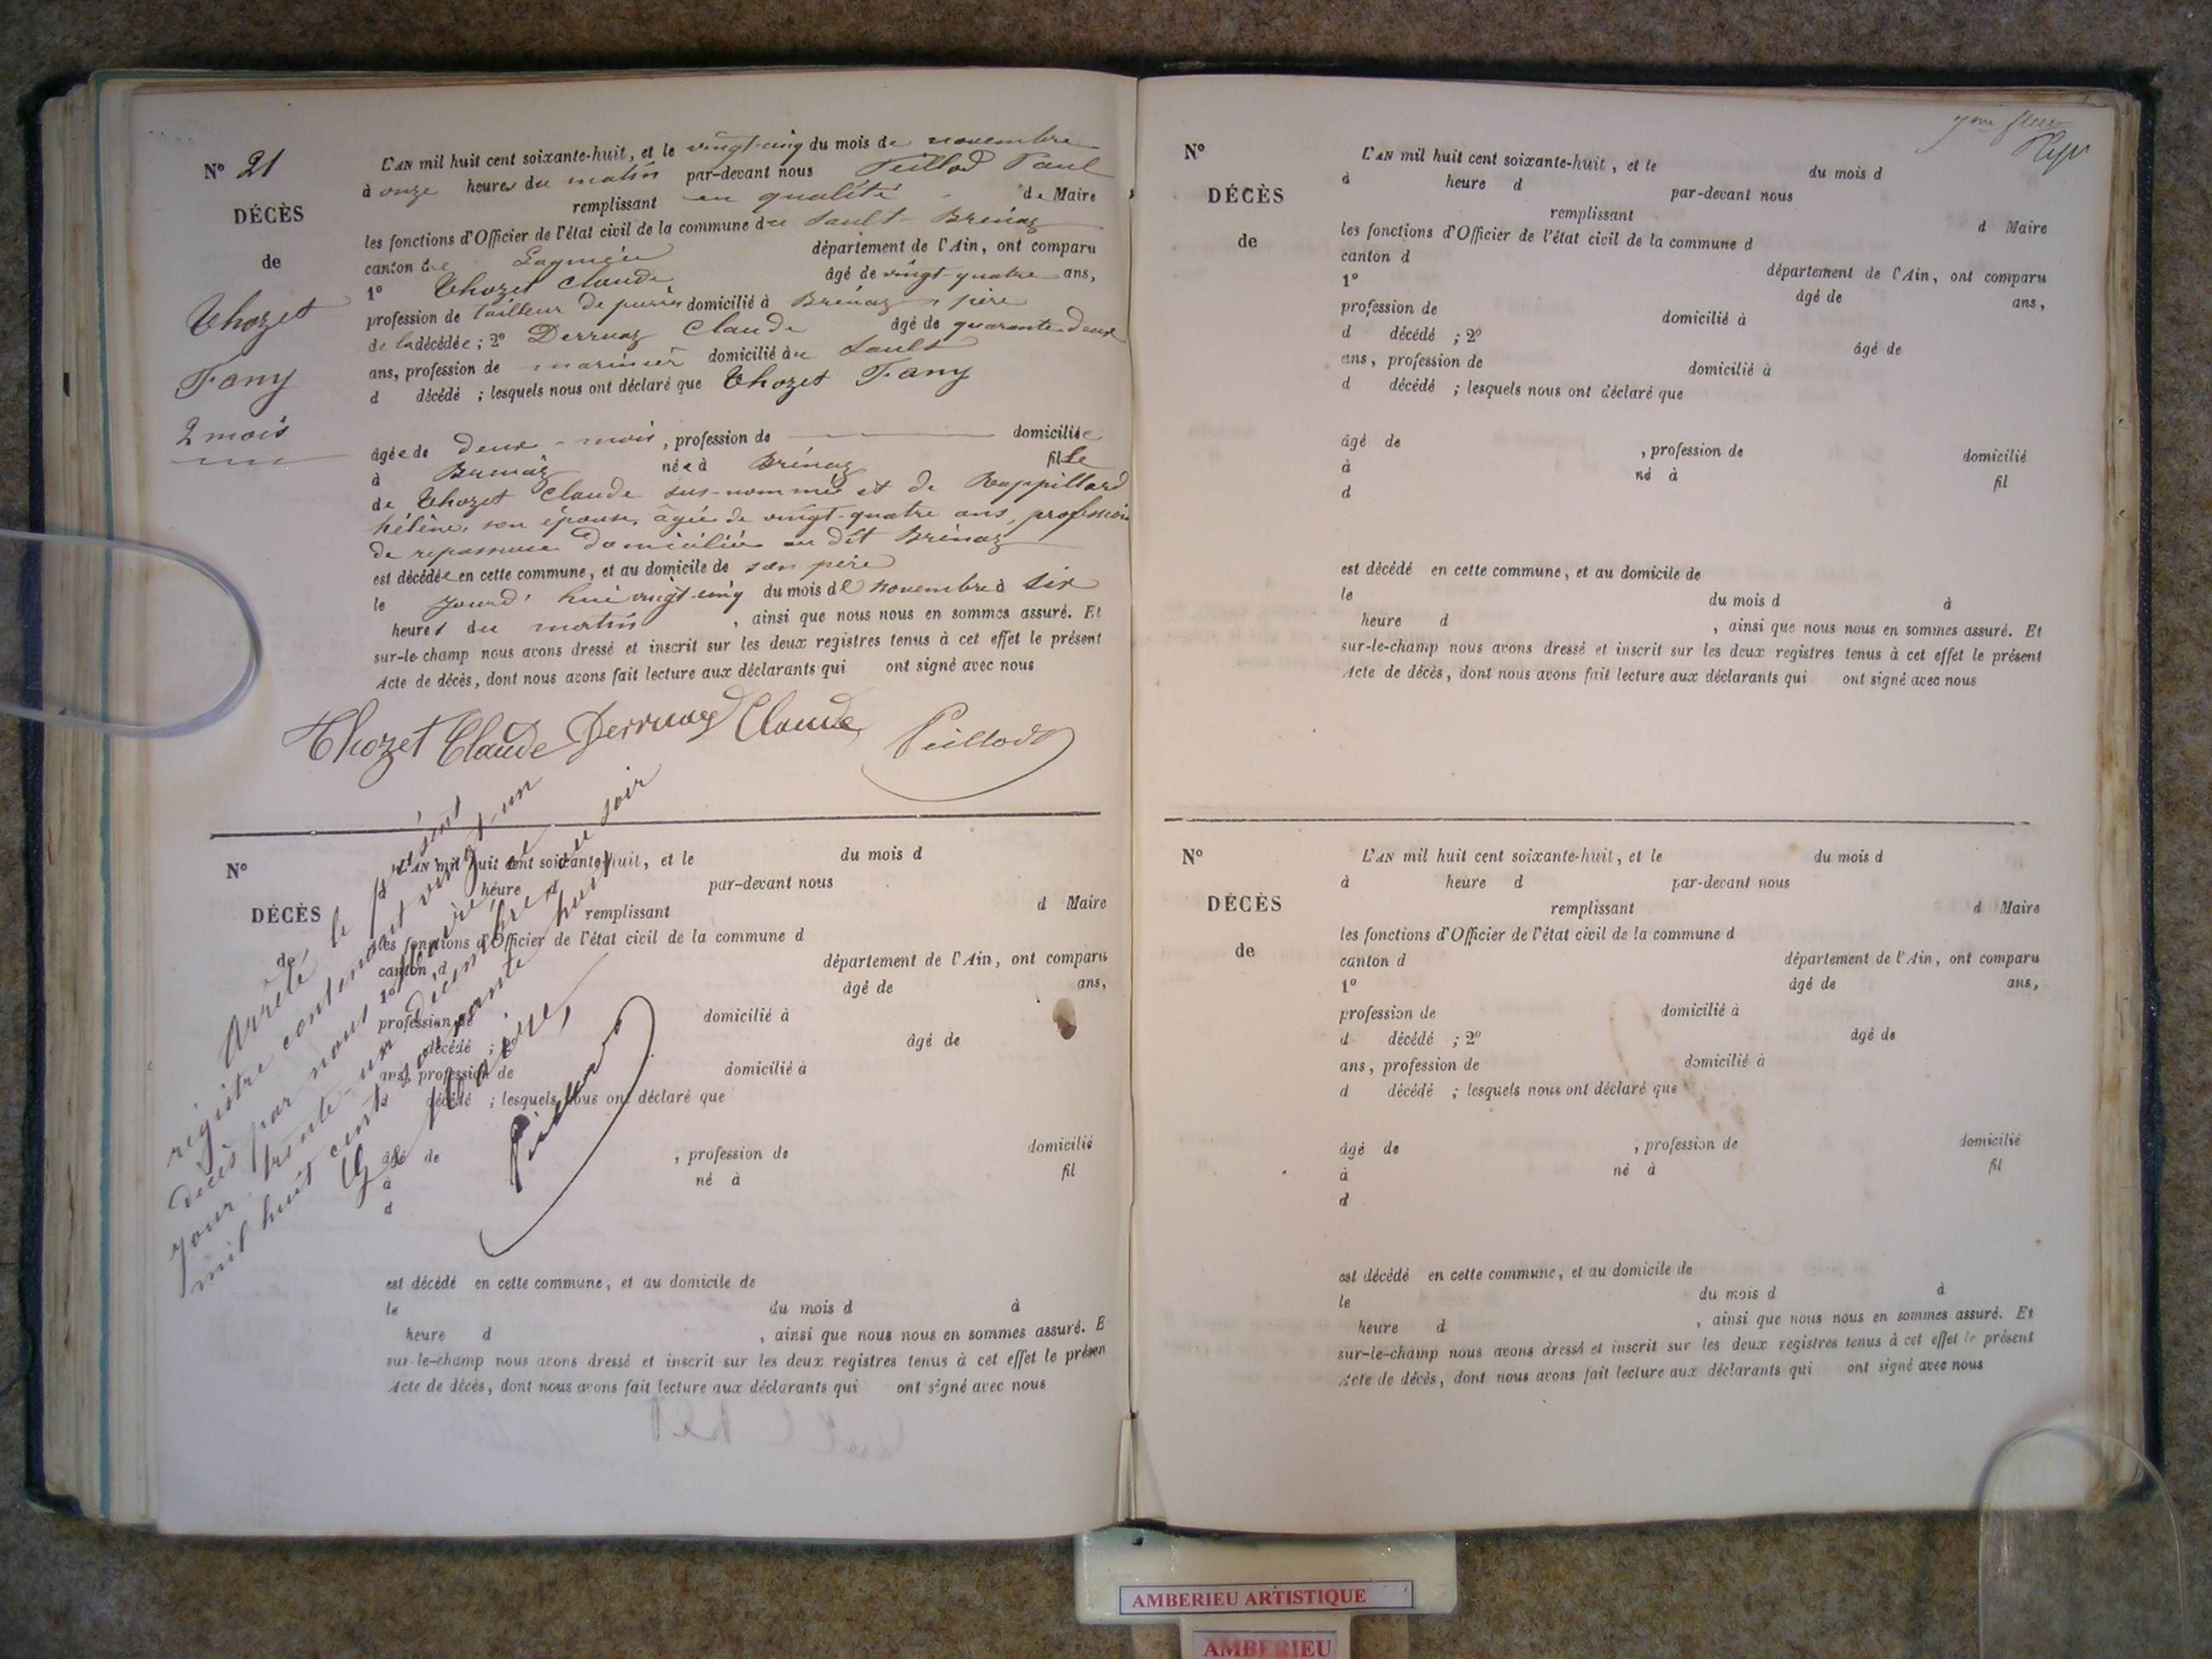 N° 21
DÉCÈS
de
Thozet
Fany
2 mois
L'AN mil huit cent soixante-huit, et le vingt-cinq du mois de novembre
à onze heures du matin par-devant nous Peillod Paul
remplissant en qualité de Maire
les fonctions d'Officier de l'état civil de la commune du Sault-Brénaz
canton de Lagnieu département de l'Ain, ont comparu
1° Thozet Claude âgé de vingt-quatre ans,
profession de tailleur de pierres domicilié à Brénaz, père
de la décédée ; 2° Derruaz Claude âgé de quarante-deux
ans, profession de marinier domicilié au Sault
d décédé ; lesquels nous ont déclaré que Thozet Fany
âgée de deux-mois, profession de domiciliée
à Brénaz née à Brénaz fille
de Thozet Claude sus-nommé et de Rappillard
hélène, son épouse, âgée de vingt-quatre ans, profession
de repasseuse domiciliée au dit Brénaz
est décédée en cette commune, et au domicile de son père
le jourd'hui vingt-cinq du mois de novembre à six
heures du matin, ainsi que nous nous en sommes assuré. Et
sur-le-champ nous avons dressé et inscrit sur les deux registres tenus à cet effet le présent
Acte de décès, dont nous avons fait lecture aux déclarants qui ont signé avec nous
Thozet Claude Derruaz Claude Peillod
N°
DÉCÈS
de
L'AN mil huit cent soixante-huit, et le du mois d
heure d par-devant nous
remplissant d Maire
les fonctions d'Officier de l'état civil de la commune d
canton d département de l'Ain, ont comparu
1° âgé de ans,
profession de domicilié à
décédé ; 2° âgé de
ans, profession de domicilié à
d décédé ; lesquels nous ont déclaré que
âgé de , profession de domicilié
à né à fil
d
est décédé en cette commune, et au domicile de
le du mois d à
heure d , ainsi que nous nous en sommes assuré. E
sur-le-champ nous avons dressé et inscrit sur les deux registres tenus à cet effet le présen
Acte de décès, dont nous avons fait lecture aux déclarants qui ont signé avec nous
Arrêté le présent
registre contenant vingt-un
décès par nous maire ce
jour trente-un décembre
mil huit cent soixante huit au soir
Le Maire,
Peillod
N°
DÉCÈS
de
L'AN mil huit cent soixante-huit, et le du mois d
à heure d par-devant nous
remplissant d Maire
les fonctions d'Officier de l'état civil de la commune d
canton d département de l'Ain, ont comparu
1° âgé de ans,
profession de domicilié à
d décédé ; 2° âgé de
ans, profession de domicilié à
d décédé ; lesquels nous ont déclaré que
âgé de , profession de domicilié
à né à fil
d
est décédé en cette commune, et au domicile de
le du mois d à
heure d , ainsi que nous nous en sommes assuré. Et
sur-le-champ nous avons dressé et inscrit sur les deux registres tenus à cet effet le présent
Acte de décès, dont nous avons fait lecture aux déclarants qui ont signé avec nous
N°
DÉCÈS
de
L'AN mil huit cent soixante-huit, et le du mois d
à heure d par-devant nous
remplissant d Maire
les fonctions d'Officier de l'état civil de la commune d
canton d département de l'Ain, ont comparu
1° âgé de ans,
profession de domicilié à
d décédé ; 2° âgé de
ans, profession de domicilié à
d décédé ; lesquels nous ont déclaré que
âgé de , profession de domicilié
à né à fil
d
est décédé en cette commune, et au domicile de
le du mois d à
heure d , ainsi que nous nous en sommes assuré. Et
sur-le-champ nous avons dressé et inscrit sur les deux registres tenus à cet effet le présent
Acte de décès, dont nous avons fait lecture aux déclarants qui ont signé avec nous
AMBERIEU ARTISTIQUE
AMBERIEU